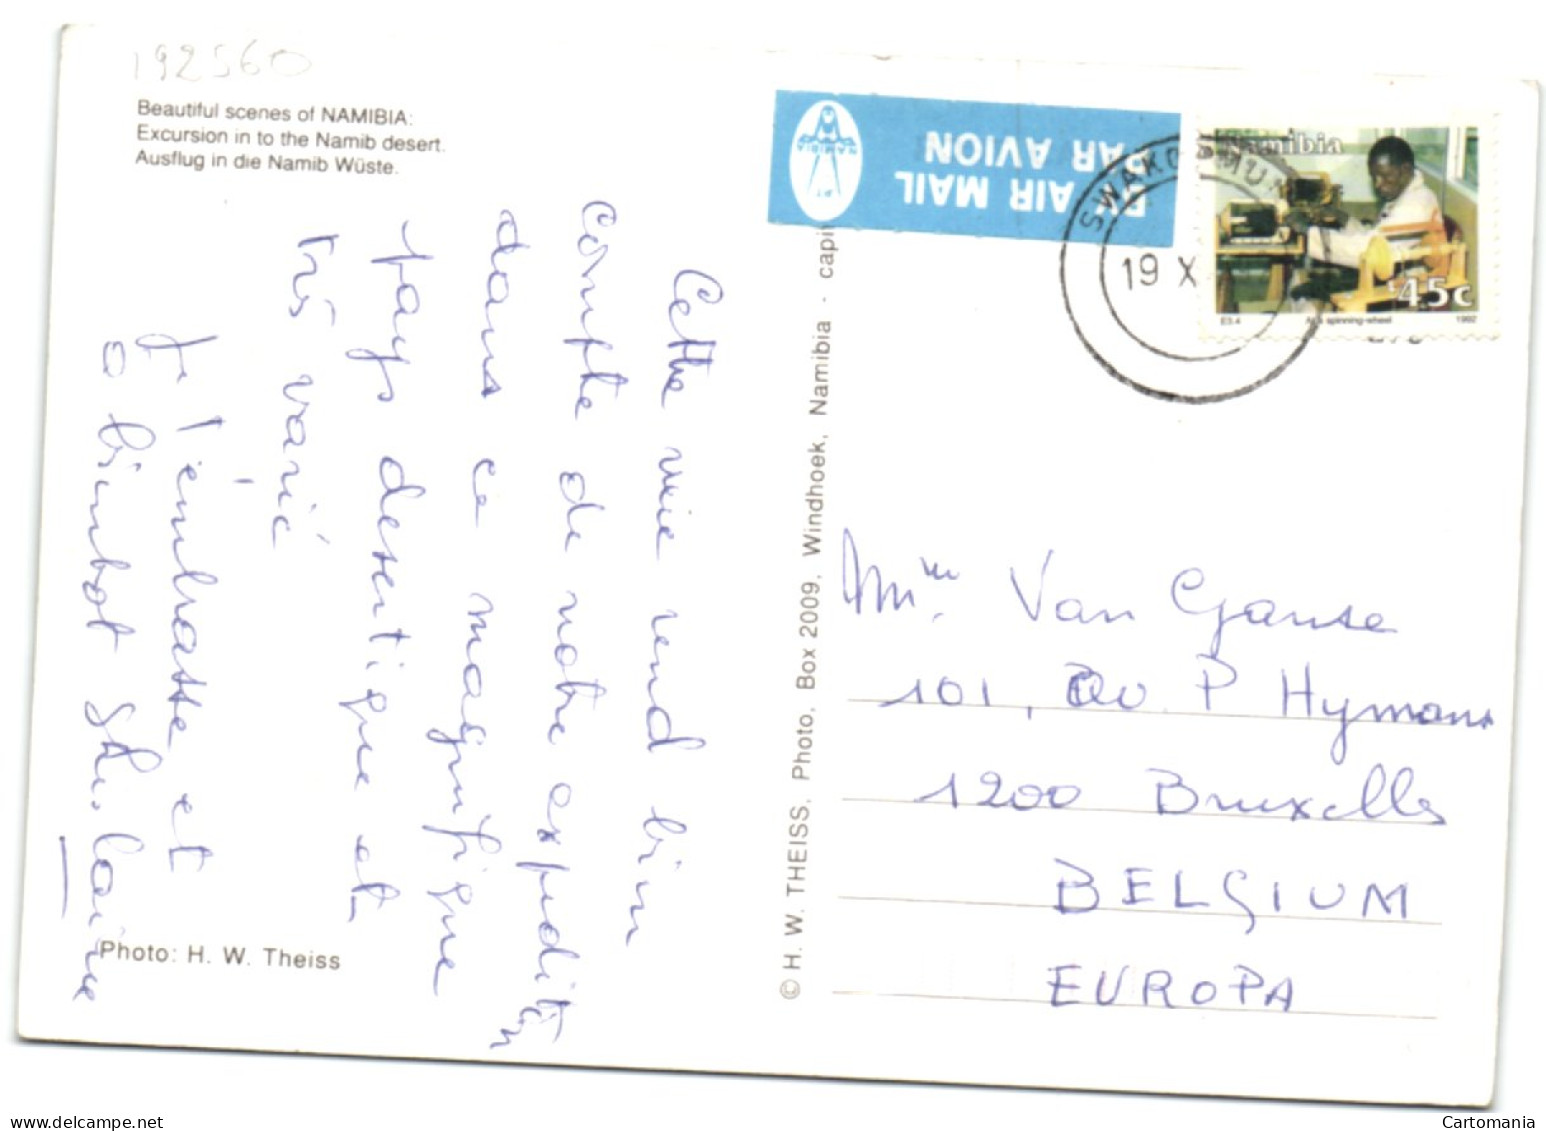 192560
Beautiful scenes of NAMIBIA:
Excursion in to the Namib desert.
Ausflug in die Namib Wüste.
Cette vue rend bien
compte de notre expédition
dans ce magnifique
pays desertique et
très varié
Je t'embrasse et
à bientôt
Photo: H. W. Theiss
© H. W. THEISS, Photo, Box 2009, Windhoek, Namibia - capi
BY AIR MAIL
PAR AVION
NAMIBIA
SWAKOPMUN
19 X
Namibia
45c
spinning-wheel
1992
Mme Van Ganse
101, Av. P Hymans
1200 Bruxelles
BELGIUM
EUROPA
www.delcampe.net
Cartomania